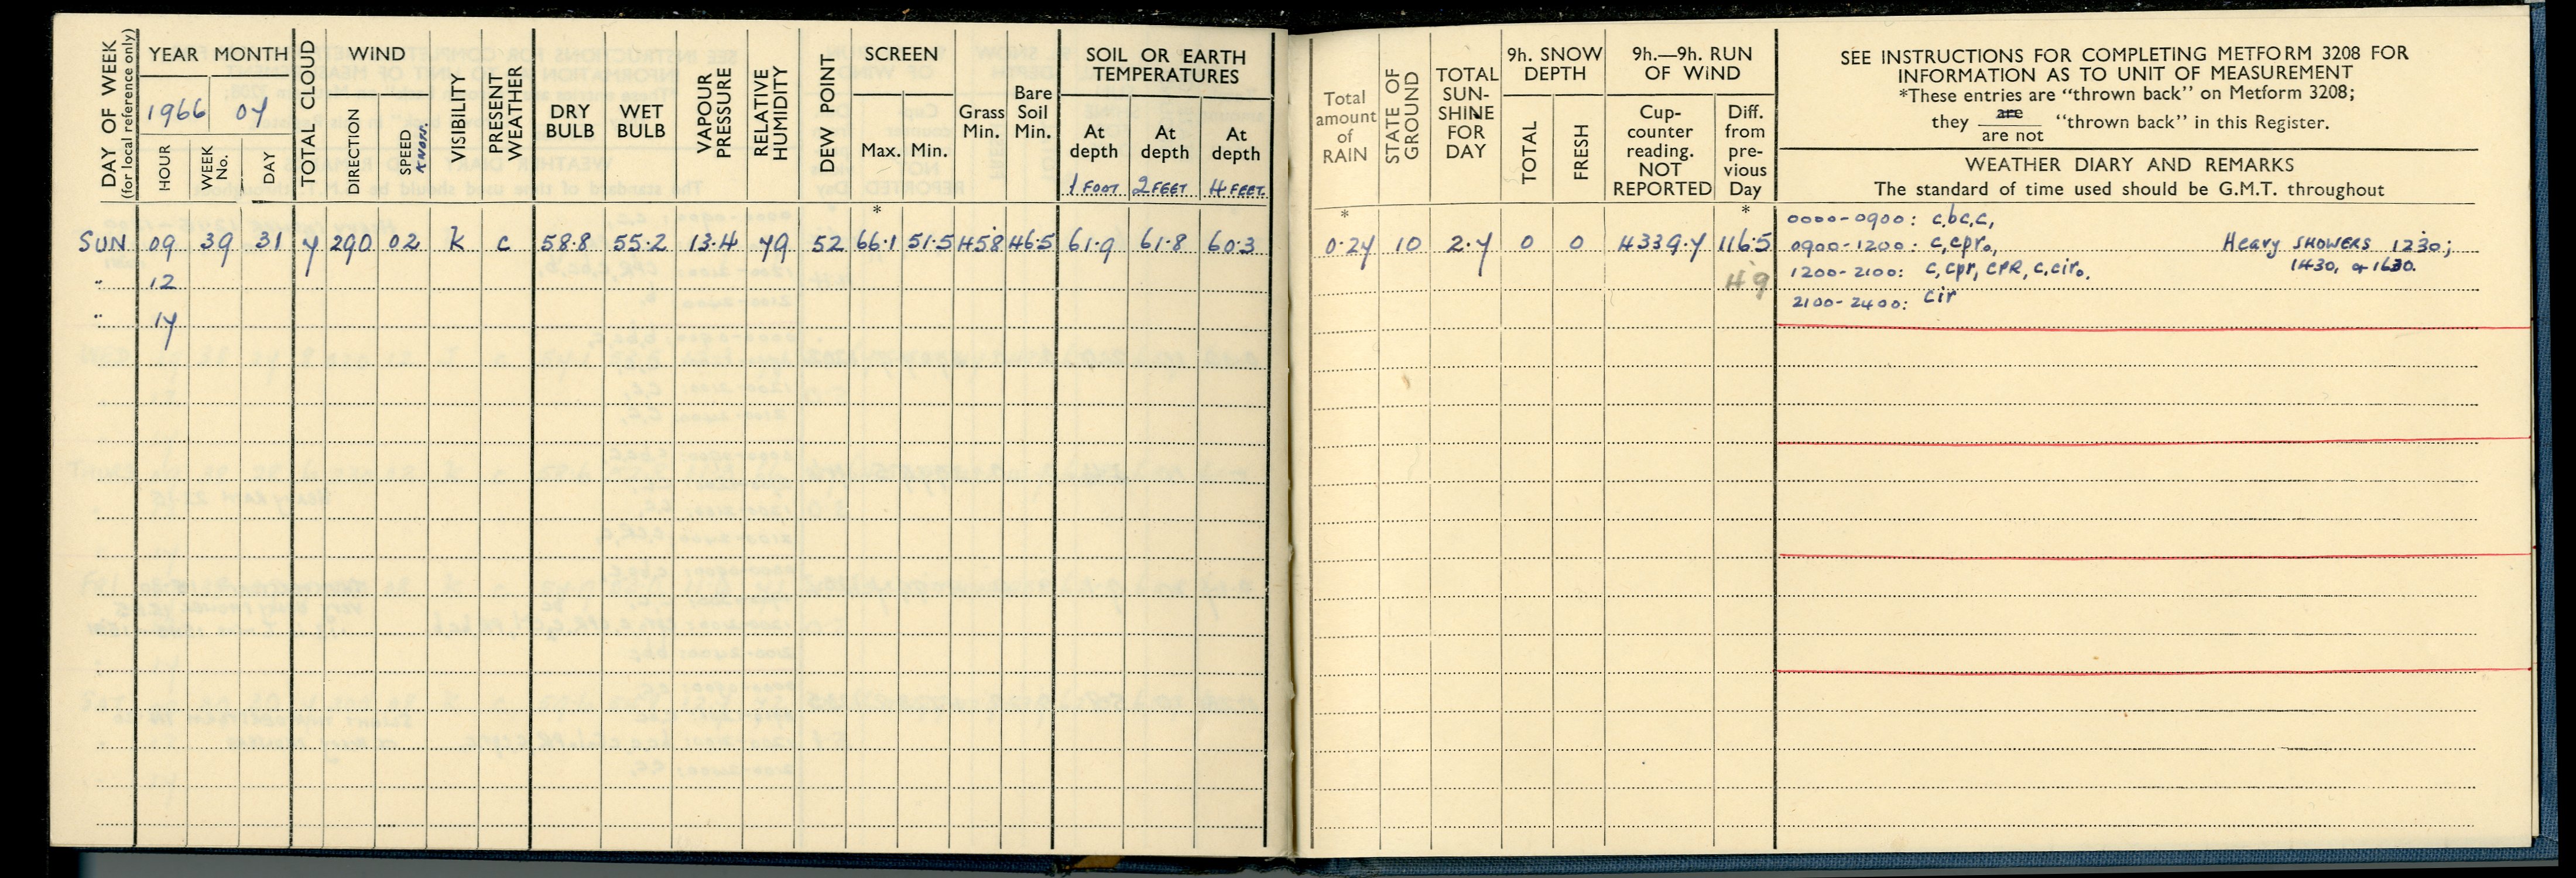 DAY OF WEEK
(for local reference only)
YEAR MONTH
1966 07
HOUR
WEEK No.
DAY
TOTAL CLOUD
WIND
DIRECTION
SPEED KNOTS.
VISIBILITY
PRESENT WEATHER
DRY BULB
WET BULB
VAPOUR PRESSURE
RELATIVE HUMIDITY
DEW POINT
SCREEN
Max. Min.
Grass Min.
Bare Soil Min.
SOIL OR EARTH TEMPERATURES
At depth 1 FOOT
At depth 2 FEET
At depth 4 FEET
Total amount of RAIN
STATE OF GROUND
TOTAL SUN-SHINE FOR DAY
9h. SNOW DEPTH
TOTAL
FRESH
9h.—9h. RUN OF WIND
Cup-counter reading. NOT REPORTED
Diff. from pre-vious Day
SEE INSTRUCTIONS FOR COMPLETING METFORM 3208 FOR
INFORMATION AS TO UNIT OF MEASUREMENT
*These entries are "thrown back" on Metform 3208;
they are / are not "thrown back" in this Register.
WEATHER DIARY AND REMARKS
The standard of time used should be G.M.T. throughout
* * *
SUN 09 39 31 7 290 02 k c 58.8 55.2 13.4 79 52 66.1 51.5 45.8 46.5 61.9 61.8 60.3 0.27 10 2.7 0 0 4339.7 116.5
" 12 4.9
" 17
0000-0900: c,bc,c,
0900-1200: c,cpr₀, Heavy SHOWERS 1230;
1200-2100: c,cpr, CPR, c,cir₀. 1430, & 1630.
2100-2400: cir